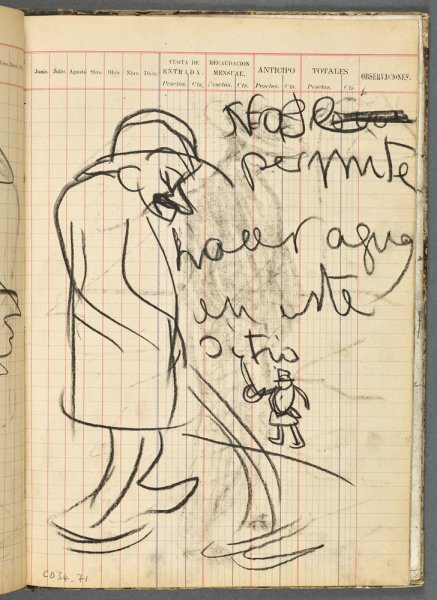 Junio. Julio. Agosto Sbre. Obre Nbre. Dbre.
CUOTA DE ENTRADA.
RECAUDACION MENSUAL.
ANTICIPO
TOTALES
OBSERVACIONES.
Pesetas. Cts. Pesetas. Cts. Pesetas. Cts. Pesetas. Cts.
No se
permite
hacer agua
en este
sitio
CD34-71